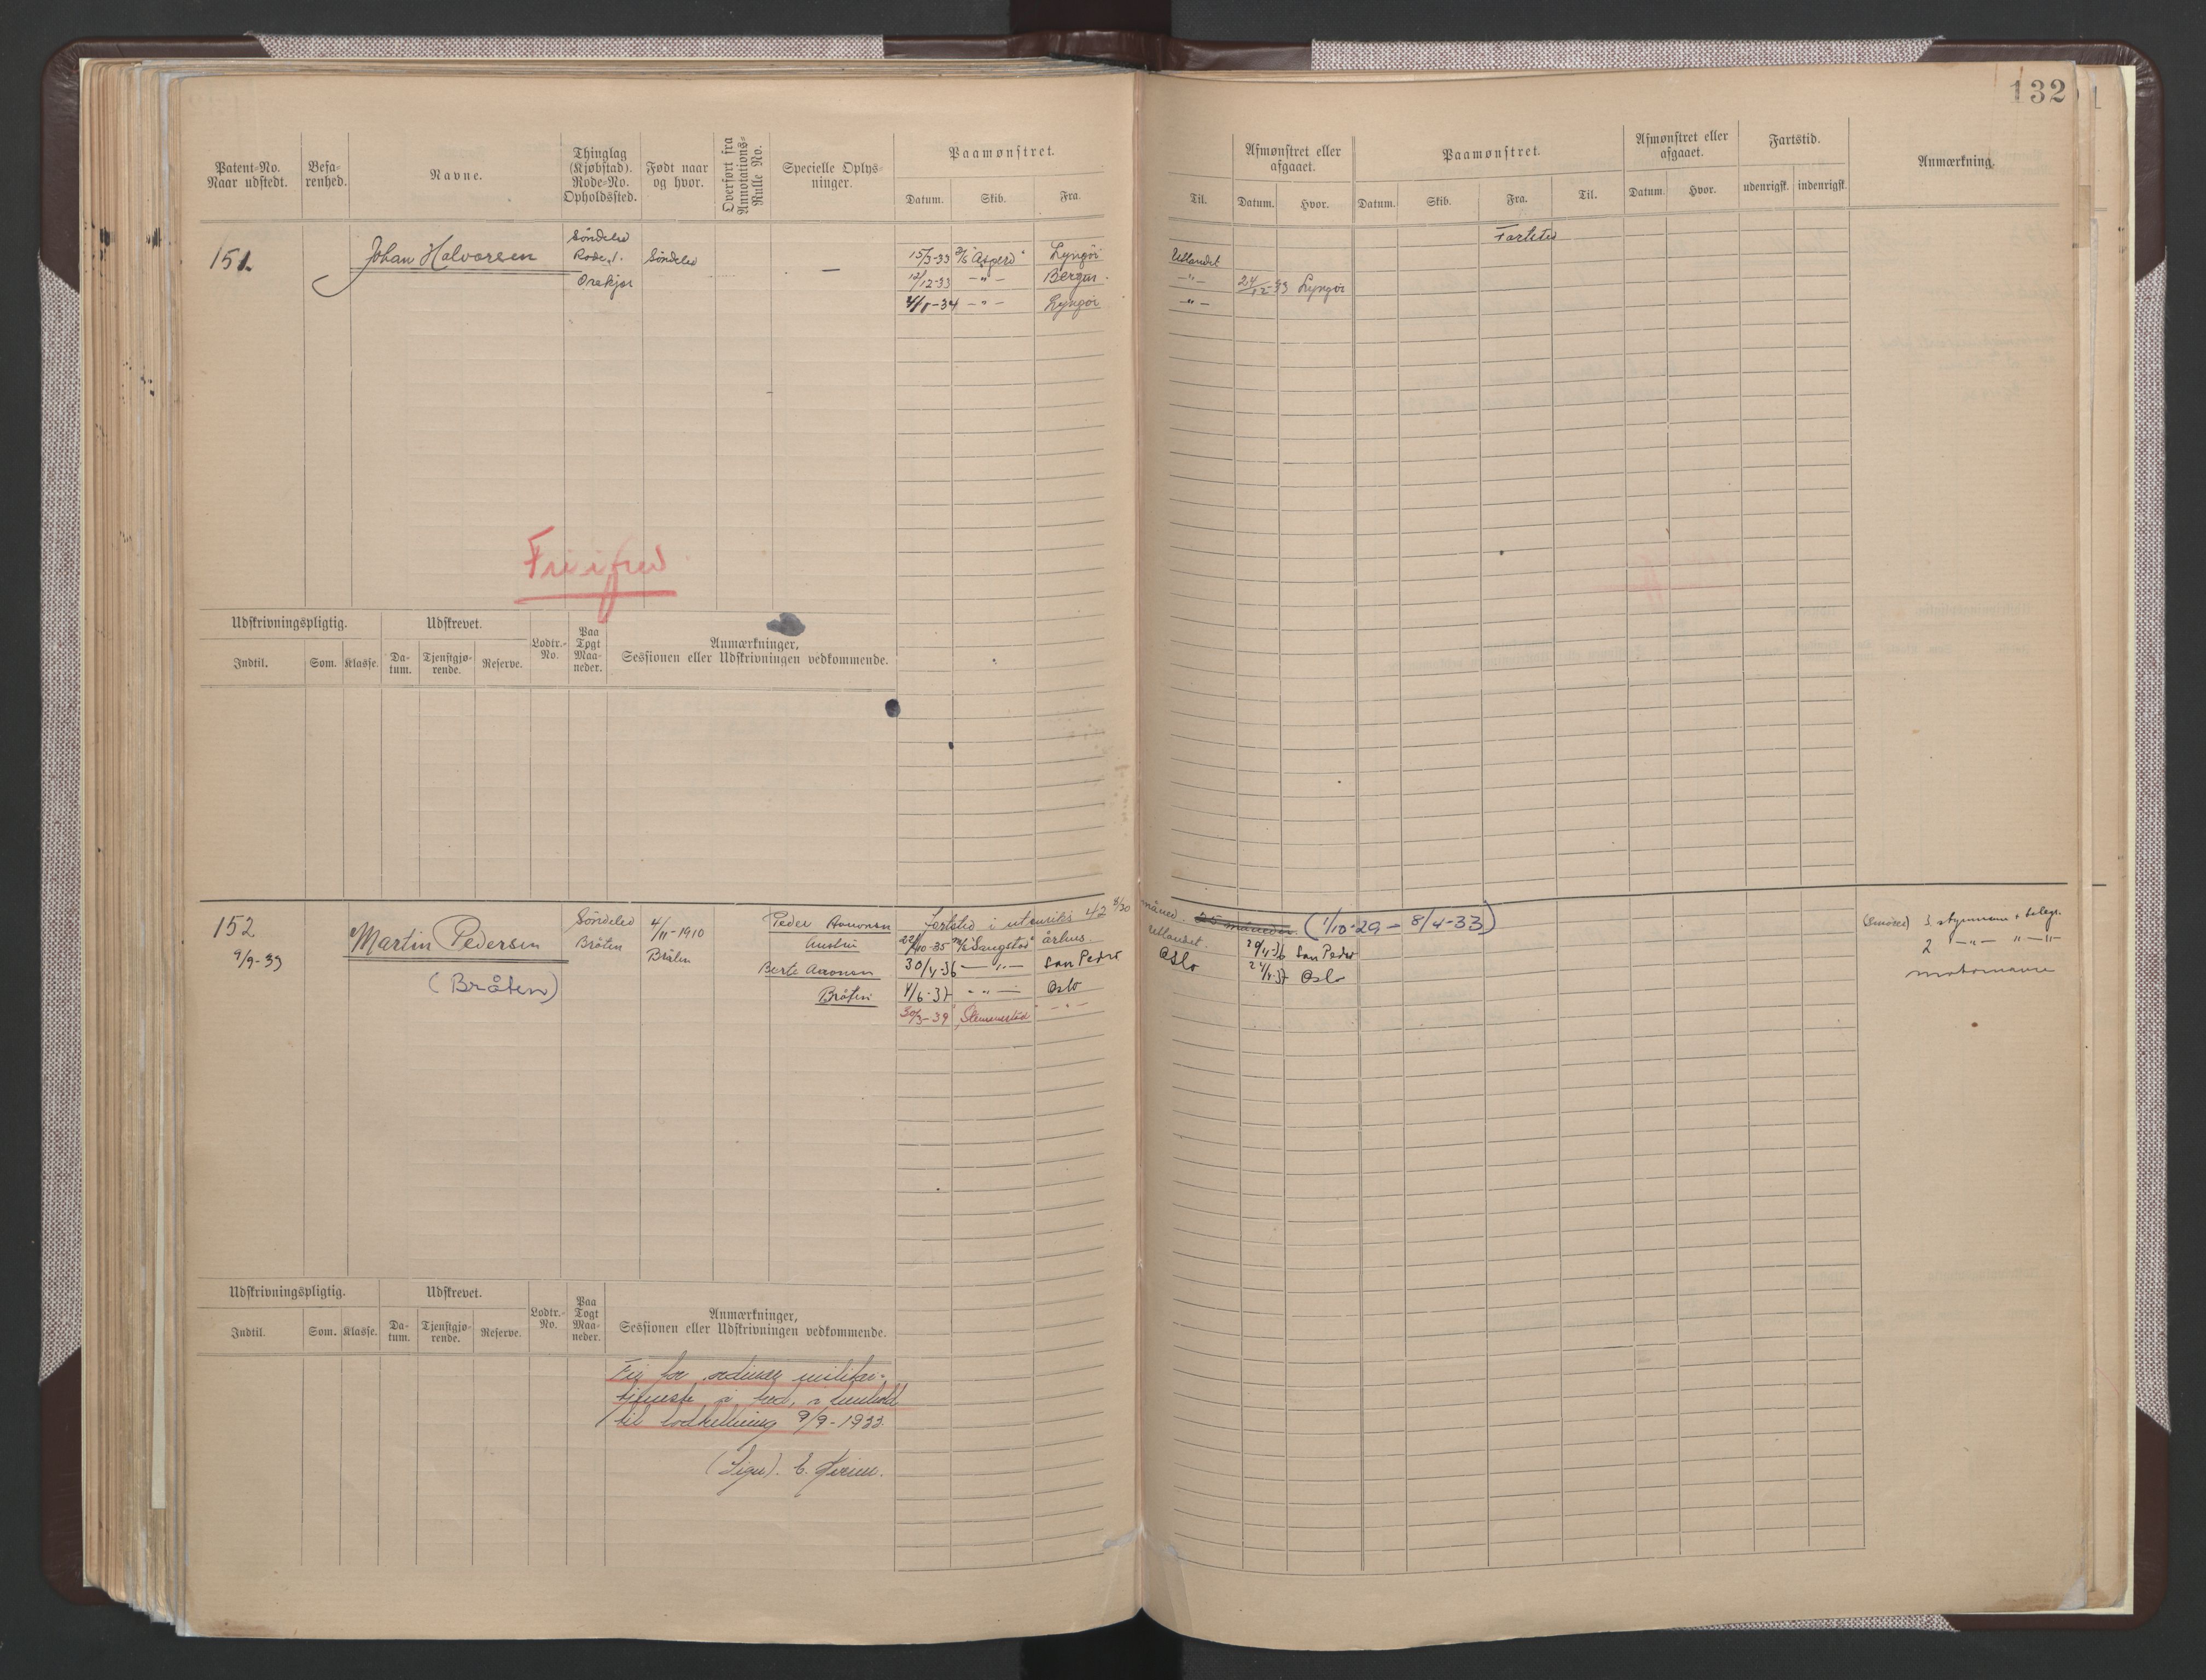 132
Patent-No. Naar udstedt.
Befarenhed.
Navne.
Thinglag (Kjøbstad). Rode-No. Opholdssted.
Født naar og hvor.
Overført fra Annotations-Rulle No.
Specielle Oplysninger.
Paamønstret.
Datum. Skib. Fra.
Til.
Afmønstret eller afgaaet.
Datum. Hvor.
Paamønstret.
Datum. Skib. Fra. Til.
Afmønstret eller afgaaet.
Datum. Hvor.
Fartstid.
udenrigsk. indenrigsk.
Anmærkning.
Fartsted
151.
Johan Halvorsen
Söndeled
Rode 1.
Söndeled
—
15/3-33 "Asperö" Lyngör Utlandet
12/12-33 —"— Bergen. —"— 24/12-33 Lyngör
4/1-34 —"— Lyngör —"—
Fri i fred
Udskrivningspligtig.
Indtil. Som. Klasse.
Udskrevet.
Datum. Tjenstgjørende. Reserve.
Lodtr.-No.
Paa Togt Maaneder.
Anmærkninger, Sessionen eller Udskrivningen vedkommende.
152
9/9-33
Martin Pedersen
(Bråten)
Söndeled
Bråten
4/11-1910
Bråten
Peder
Berte Aaronsen
Bråten
Fartstid i utenriks 42 8/30 måned. 25 måneder. (1/10-29 - 8/4-33)
22/10-35 "Saugstad" århus Utlandet. 29/4-36 San Pedro
30/4-36 —"— San Pedro Oslo 24/4-37 Oslo
4/6-37 —"— Oslo
30/3-39 —"—
3 styrmann + telegr.
2 —"— "—"—
Udskrivningspligtig.
Indtil. Som. Klasse.
Udskrevet.
Datum. Tjenstgjørende. Reserve.
Lodtr.-No.
Paa Togt Maaneder.
Anmærkninger, Sessionen eller Udskrivningen vedkommende.
Fri for ordinær militær-
tjeneste i fred, i henhold
til lodtrekning 9/9-1933.
(Sign). E.